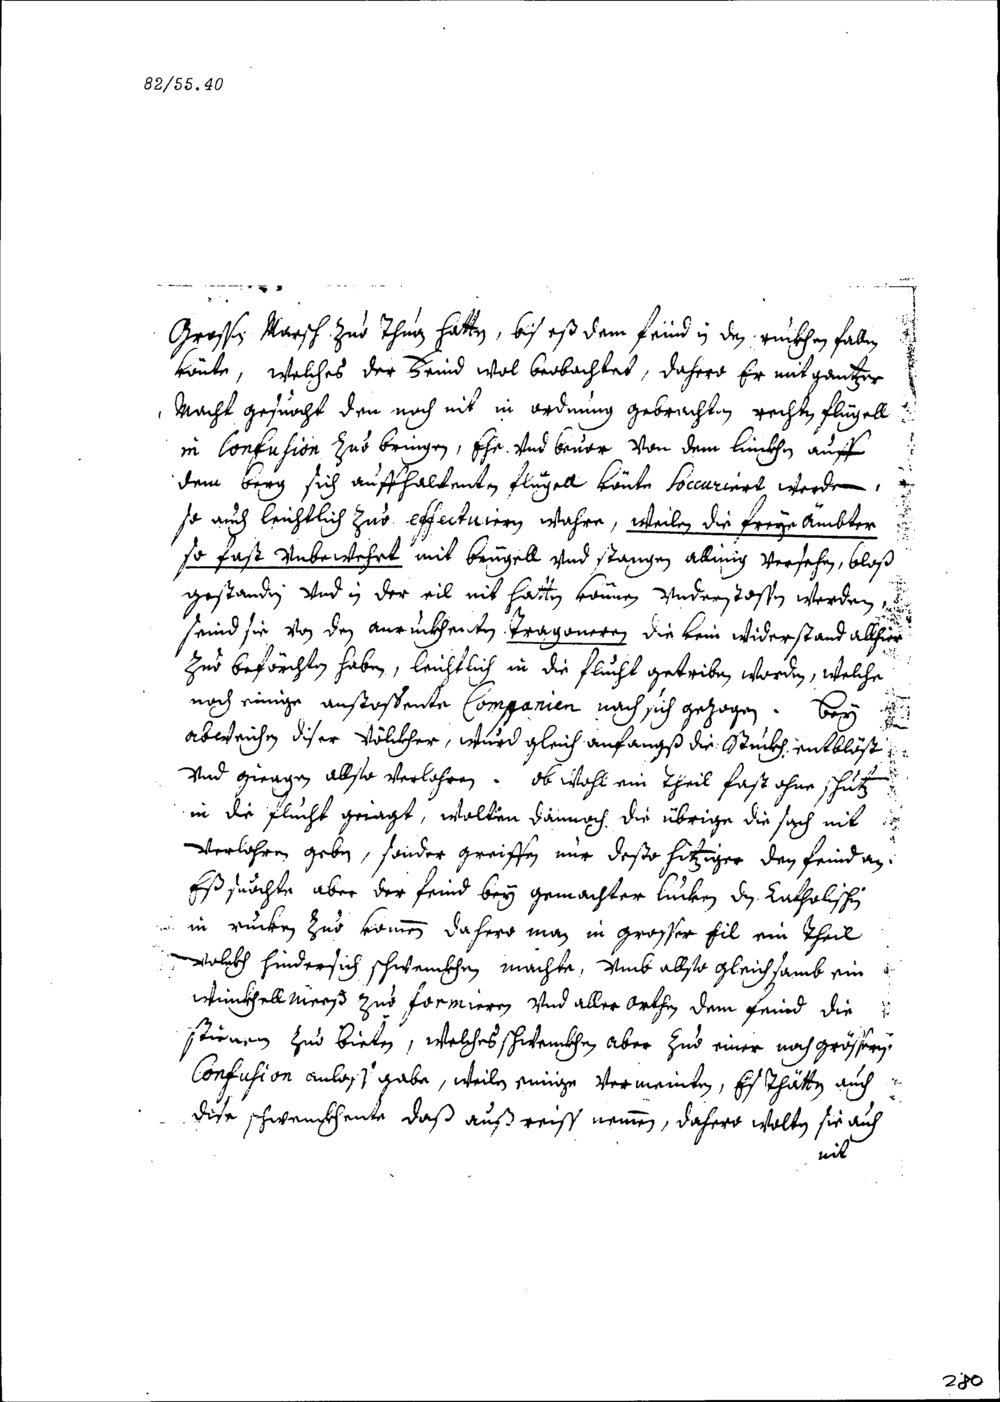 82/55.40
Grossen Marsch zuo Thuon hatten, biß eß dem feind in den ruckhen fallen
könte, welches der Feind wol beobachtet, dahero Er mit gantzer
Macht gesuocht den noch nit in ordnung gebrachten rechten flügell
in Confusion zuo bringen, Ehe vnd bevor von dem linckhen auff
dem berg sich auffhaltenten flügell könte soccuriert werden,
so auch leichtlich zuo effectuiern wahre, weilen die freye Ämbter
so fast vnbewehrt mit brügell vnd stangen allinig versehen, bloß
gestanden vnd in der eil nit hatten können vnderstossen werden,
seind sie von den anruckhenten Tragoneren die kein widerstand allhier
zuo beförchten haben, leichtlich in die flucht getriben worden, welche
noch einige anstossente Companien nach sich gezogen. Bey
abweichen diser völckher, wurd gleich anfangß die Stuckh entblöst
vnd giengen allso verlohren. ob wohl ein Theil fast ohne schutz
in die flucht geiagt, wolten dannoch die übrige die sach nit
verlohren geben, sonder greiffen nur desto hitziger den feind an.
Eß suochte aber der feind bey gemachter lucken den Catholischen
in rucken zuo komen dahero man in grosser Eil ein Theil
volckh hindersich schwenckhen machte, vmb allso gleichsamb ein
winckhell Mess zuo formieren vnd aller orthen dem feind die
stirnen zuo bieten, welches schwenckhen aber zuo einer noch grösseren
Confusion anlass gabe, weilen einige vermeinten, Es thätten auch
dise schwenckhente daß auß reiss nemen, dahero wolten sie auch
nit
280